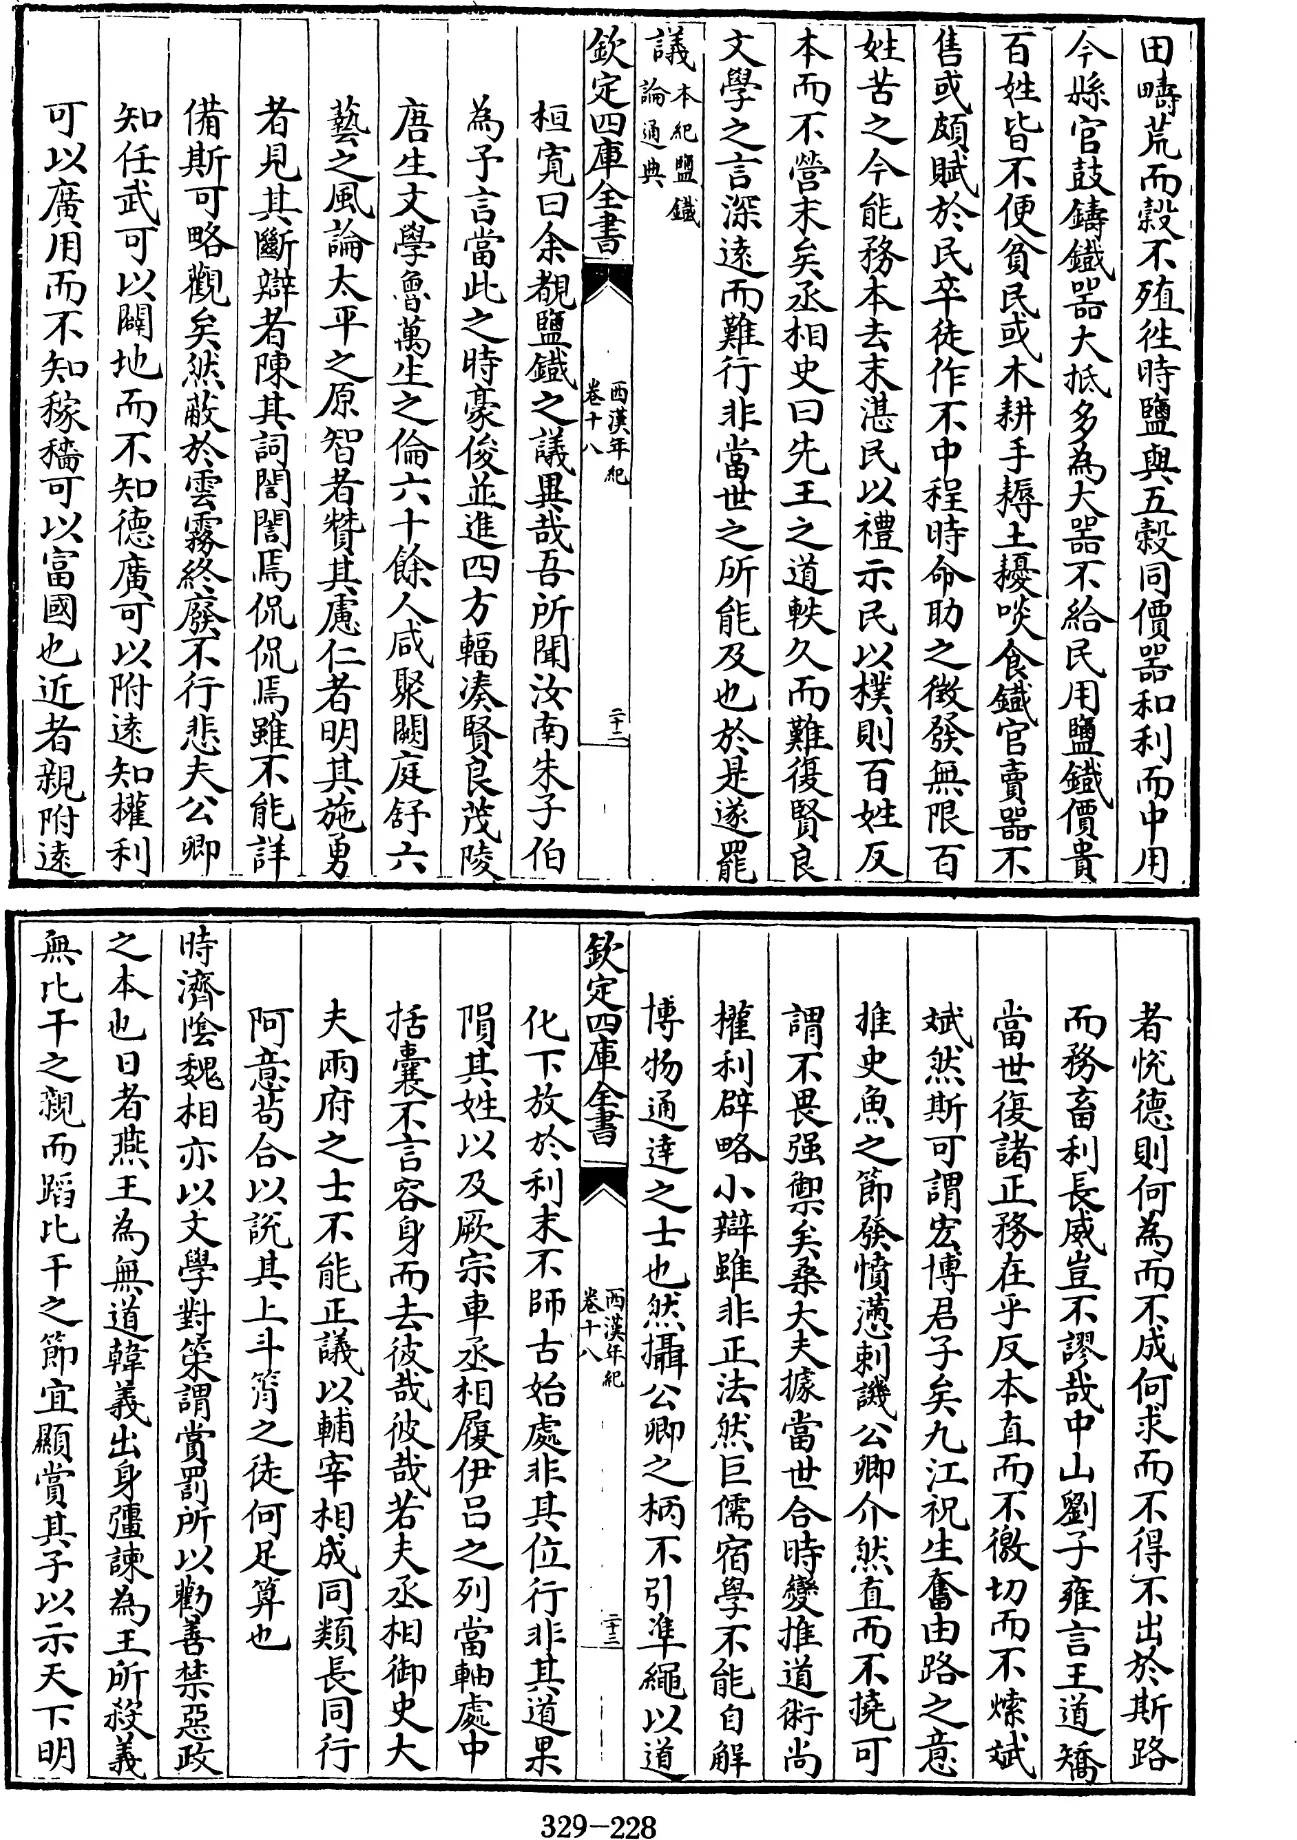 田疇荒而穀不殖往時鹽與五穀同價器和利而中用
今縣官鼓鑄鐵器大抵多為大器不給民用鹽鐵價貴
百姓皆不便貧民或木耕手耨土耰啖食鐵官賣器不
售或頗賦於民卒徒作不中程時命助之徵發無限百
姓苦之今能務本去末湛民以禮示民以樸則百姓反
本而不營末矣丞相史曰先王之道軼久而難復賢良
文學之言深遠而難行非當世之所能及也於是遂罷
議本紀鹽鐵
論通典
欽定四庫全書
西漢年紀
卷十八
二十二
桓寬曰余覩鹽鐵之議異哉吾所聞汝南朱子伯
為予言當此之時豪俊並進四方輻凑賢良茂陵
唐生文學魯萬生之倫六十餘人咸聚闕庭舒六
藝之風論太平之原智者贊其慮仁者明其施勇
者見其斷辯者陳其詞誾誾焉侃侃焉雖不能詳
備斯可略觀矣然蔽於雲霧終廢不行悲夫公卿
知任武可以闢地而不知德廣可以附遠知權利
可以廣用而不知稼穡可以富國也近者親附遠
者悅德則何為而不成何求而不得不出於斯路
而務畜利長威豈不謬哉中山劉子雍言王道矯
當世復諸正務在乎反本直而不徼切而不㥛斌
斌然斯可謂宏博君子矣九江祝生奮由路之意
推史魚之節發憤懣刺譏公卿介然直而不撓可
謂不畏强禦矣桑大夫據當世合時變推道術尚
權利辟略小辯雖非正法然巨儒宿學不能自解
博物通達之士也然攝公卿之柄不引準繩以道
欽定四庫全書
西漢年紀
卷十八
二十三
化下放於利末不師古始處非其位行非其道果
隕其姓以及厥宗車丞相履伊吕之列當軸處中
括囊不言容身而去彼哉彼哉若夫丞相御史大
夫兩府之士不能正議以輔宰相成同類長同行
阿意苟合以說其上斗筲之徒何足算也
時濟陰魏相亦以文學對策謂賞罰所以勸善禁惡政
之本也日者燕王為無道韓義出身彊諫為王所殺義
無比干之親而蹈比干之節宜顯賞其子以示天下明
329-228